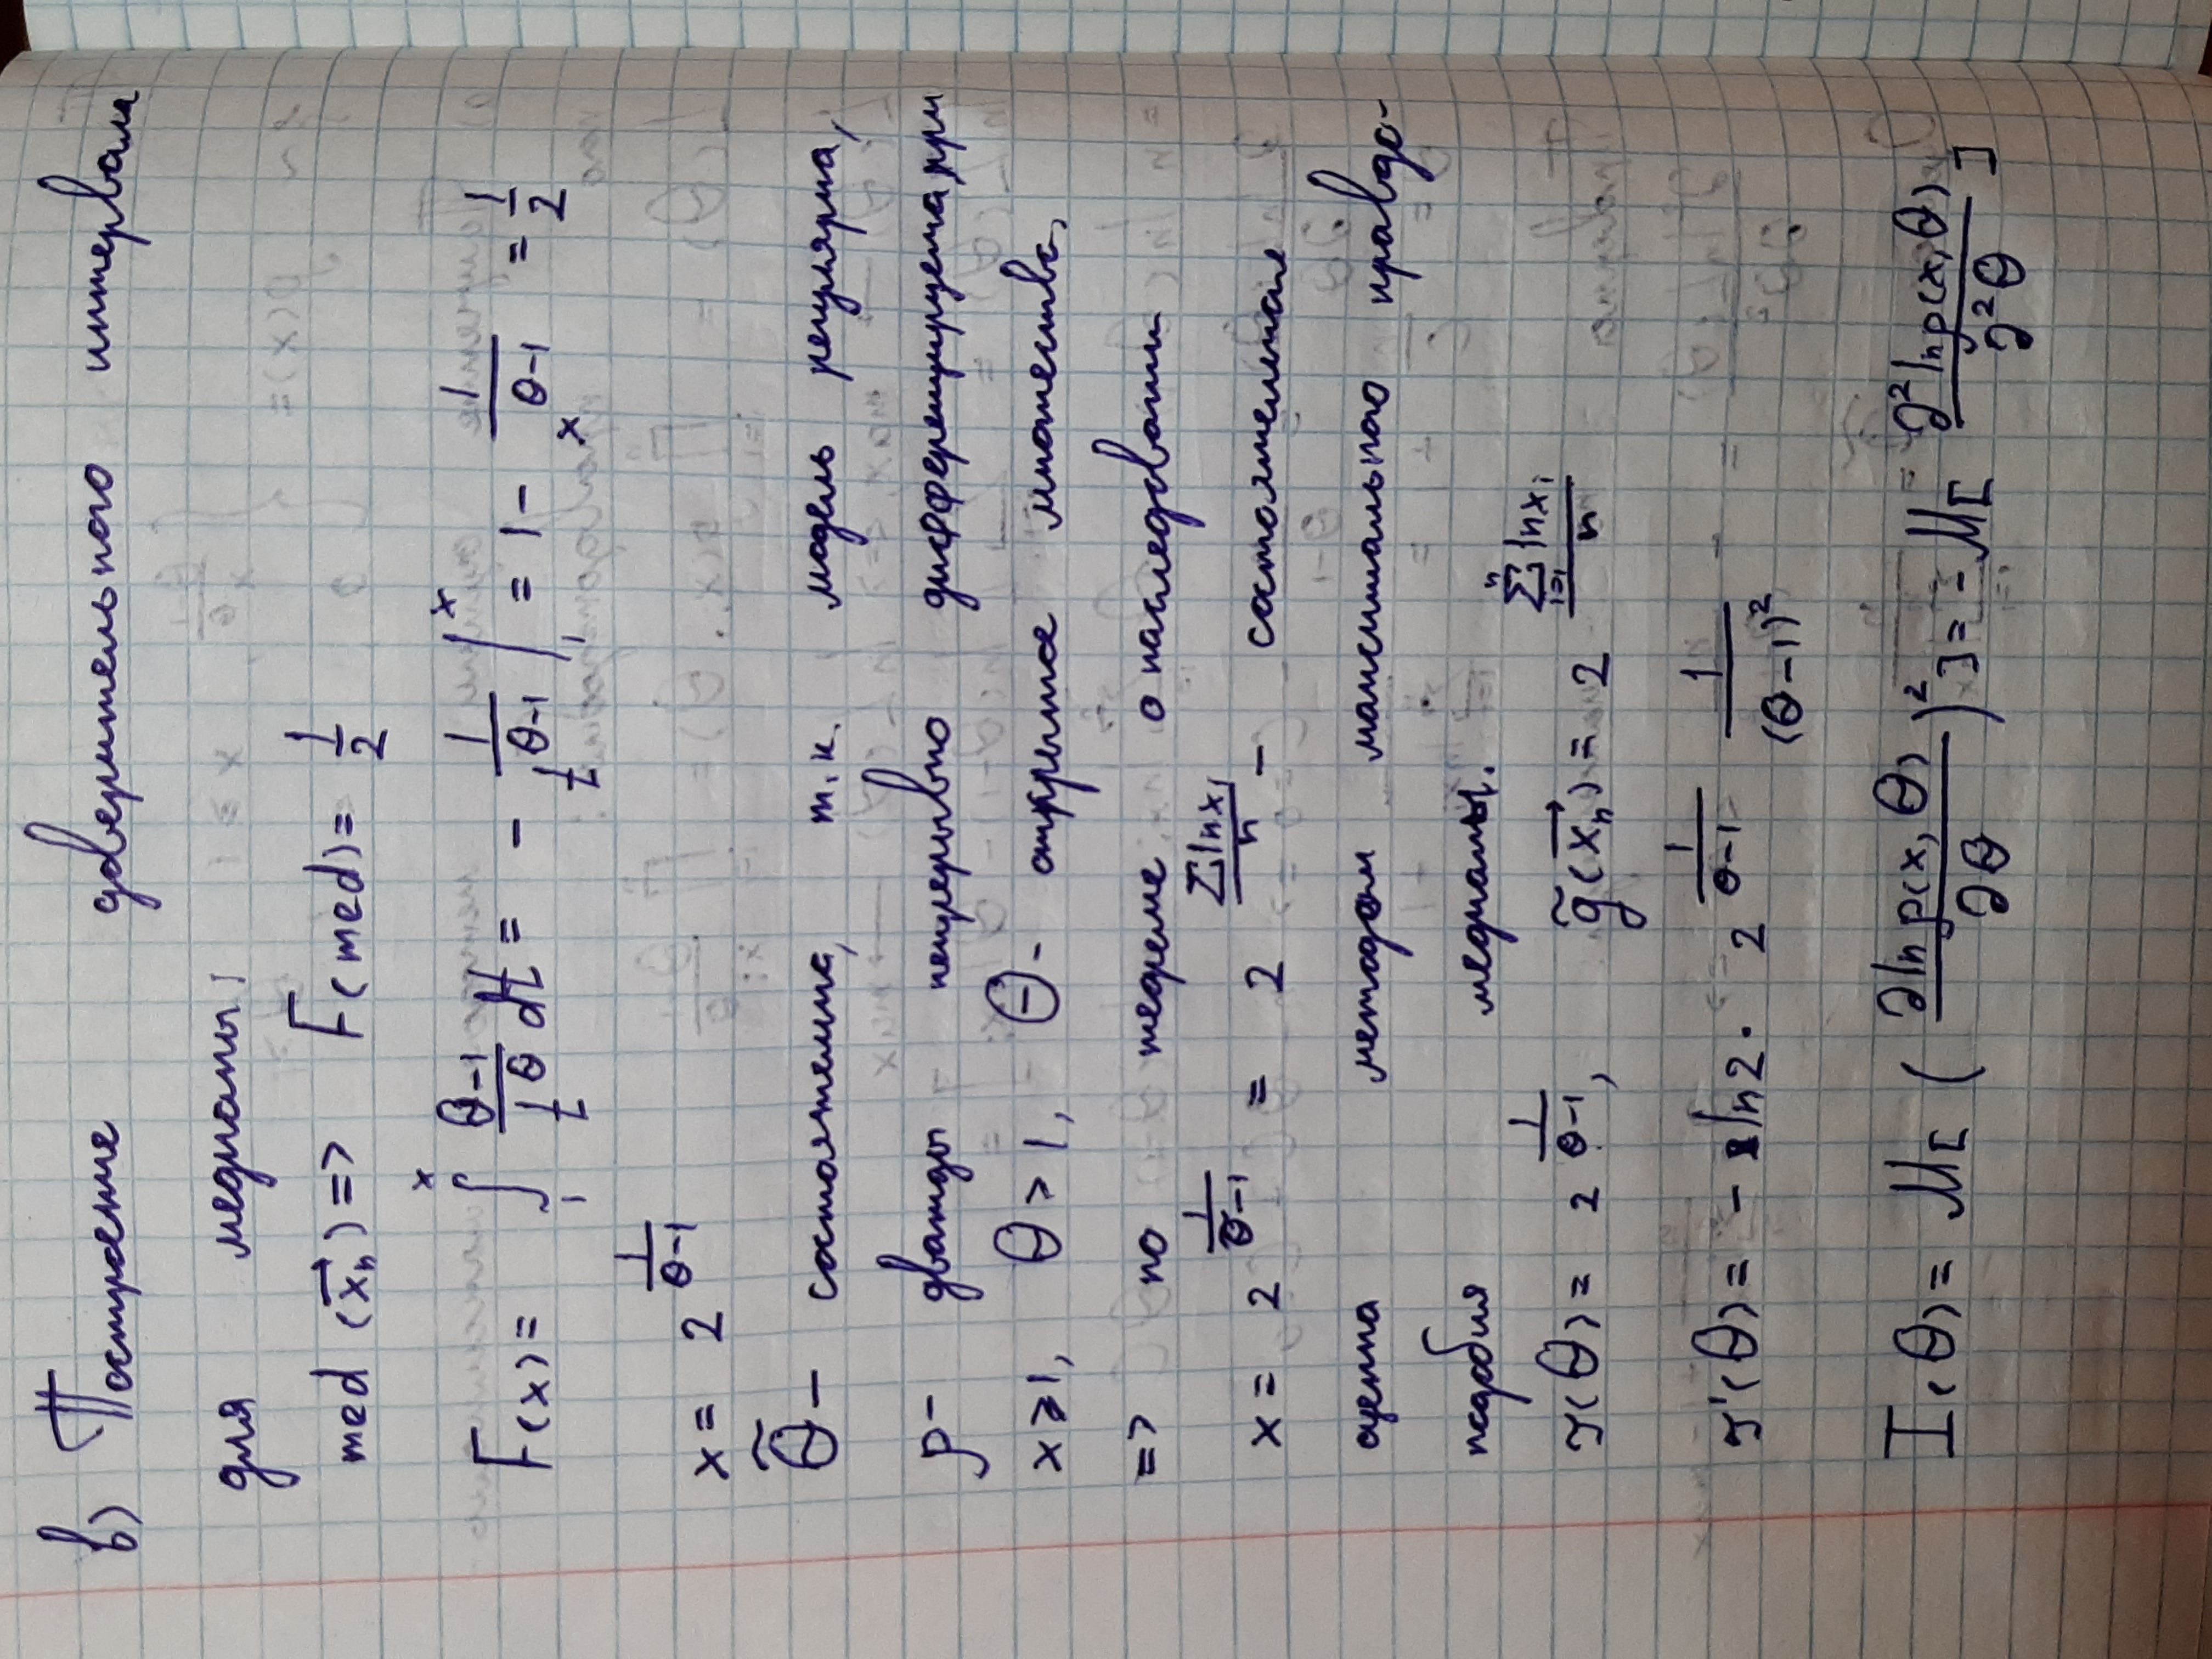 в) Построение доверительного интервала
для медианы:
med (x⃗ₙ) => F(med) = 1/2
F(x) = ∫₁ˣ (θ-1)/t^θ dt = - 1/t^(θ-1) |₁ˣ = 1 - 1/x^(θ-1) = 1/2
x = 2^(1/(θ-1))
θ̃ - состоятельна, т.к. модель регулярна,
p - дважды непрерывно дифференцируема при
x ⩾ 1, θ > 1, Θ - открытое множество,
=> по теореме о наследовании
x = 2^(1/(θ̃-1)) = 2^(Σ ln xᵢ / n) - состоятельная
оценка методом максимального правдо-
подобия медианы.
τ(θ) = 2^(1/(θ-1)), g̃(x⃗ₙ) = 2^(Σᵢ₌₁ⁿ ln xᵢ / n)
τ'(θ) = - ln2 · 2^(1/(θ-1)) 1/(θ-1)²
I(θ) = M[(∂ ln p(x, θ)/∂θ)²] = -M[∂² ln p(x, θ)/∂²θ]